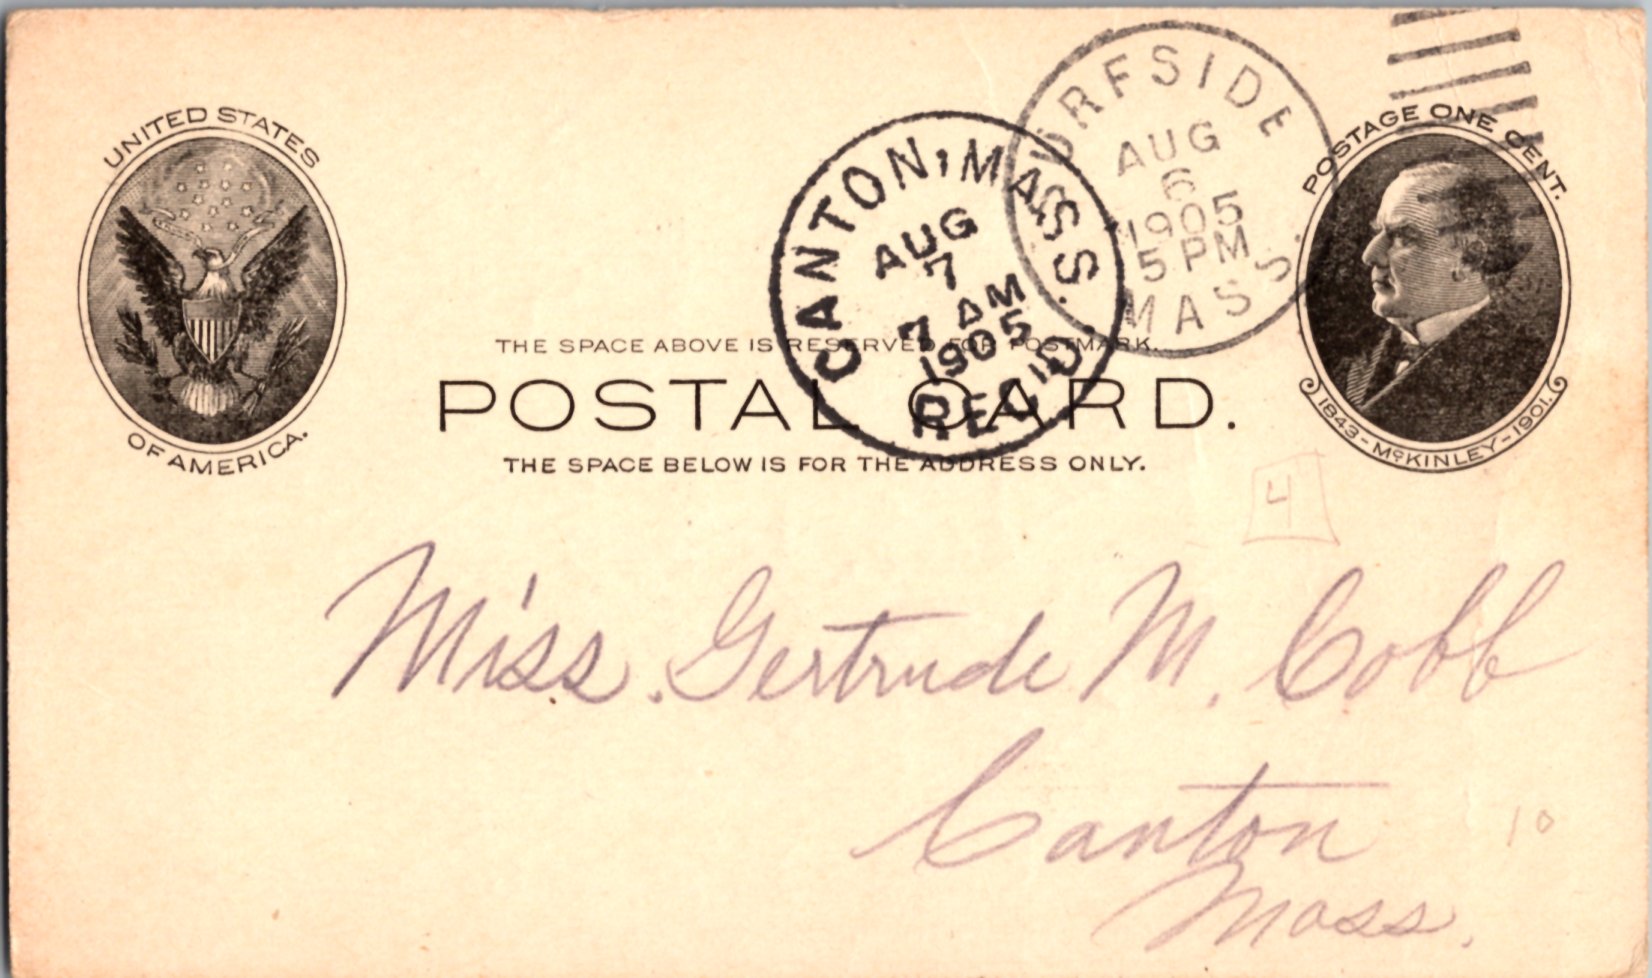 UNITED STATES
OF AMERICA.
SURFSIDE
AUG
6
1905
5 PM
MASS.
CANTON, MASS.
AUG
7
7 AM
1905
REC'D.
POSTAGE ONE CENT.
1843-McKINLEY-1901.
THE SPACE ABOVE IS RESERVED FOR POSTMARK.
POSTAL CARD.
THE SPACE BELOW IS FOR THE ADDRESS ONLY.
4
Miss. Gertrude M. Cobb
Canton
Mass.
10